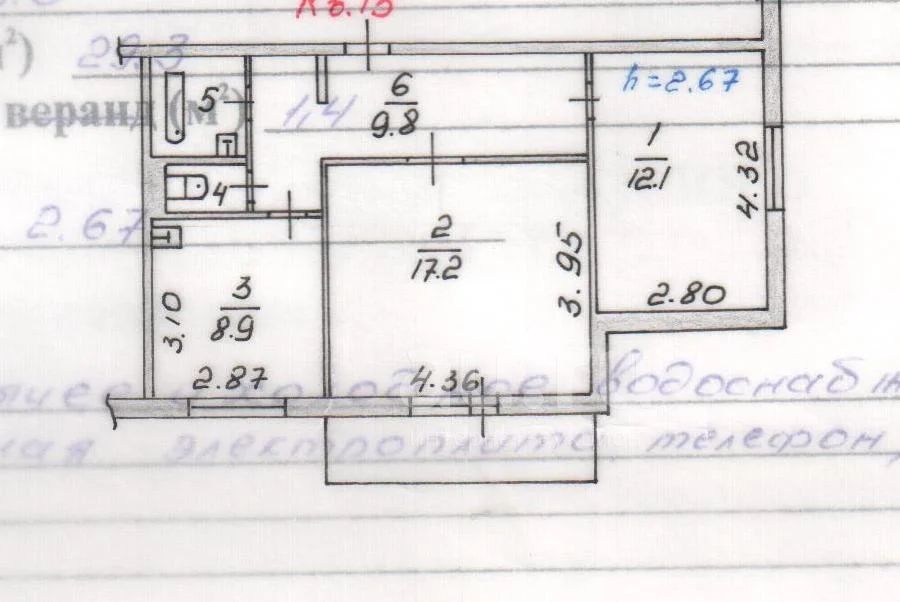 Кв. 15
м²) 29.3
5
6
9.8
h=2.67
веранд (м²) 1,4
1
12.1
4.32
4
2.67
2
17.2
3.95
3
8.9
3.10
2.80
2.87
4.36
водоснаб
ная электроплита, телефон,